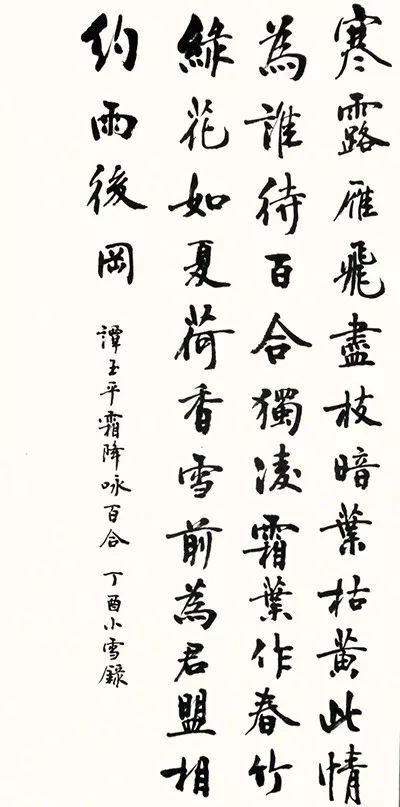 寒露雁飛盡枝暗葉枯黄此情
為誰待百合獨淩霜葉作春竹
綠花如夏荷香雪前為君盟相
約雨後岡
譚玉平霜降咏百合 丁酉小雪錄